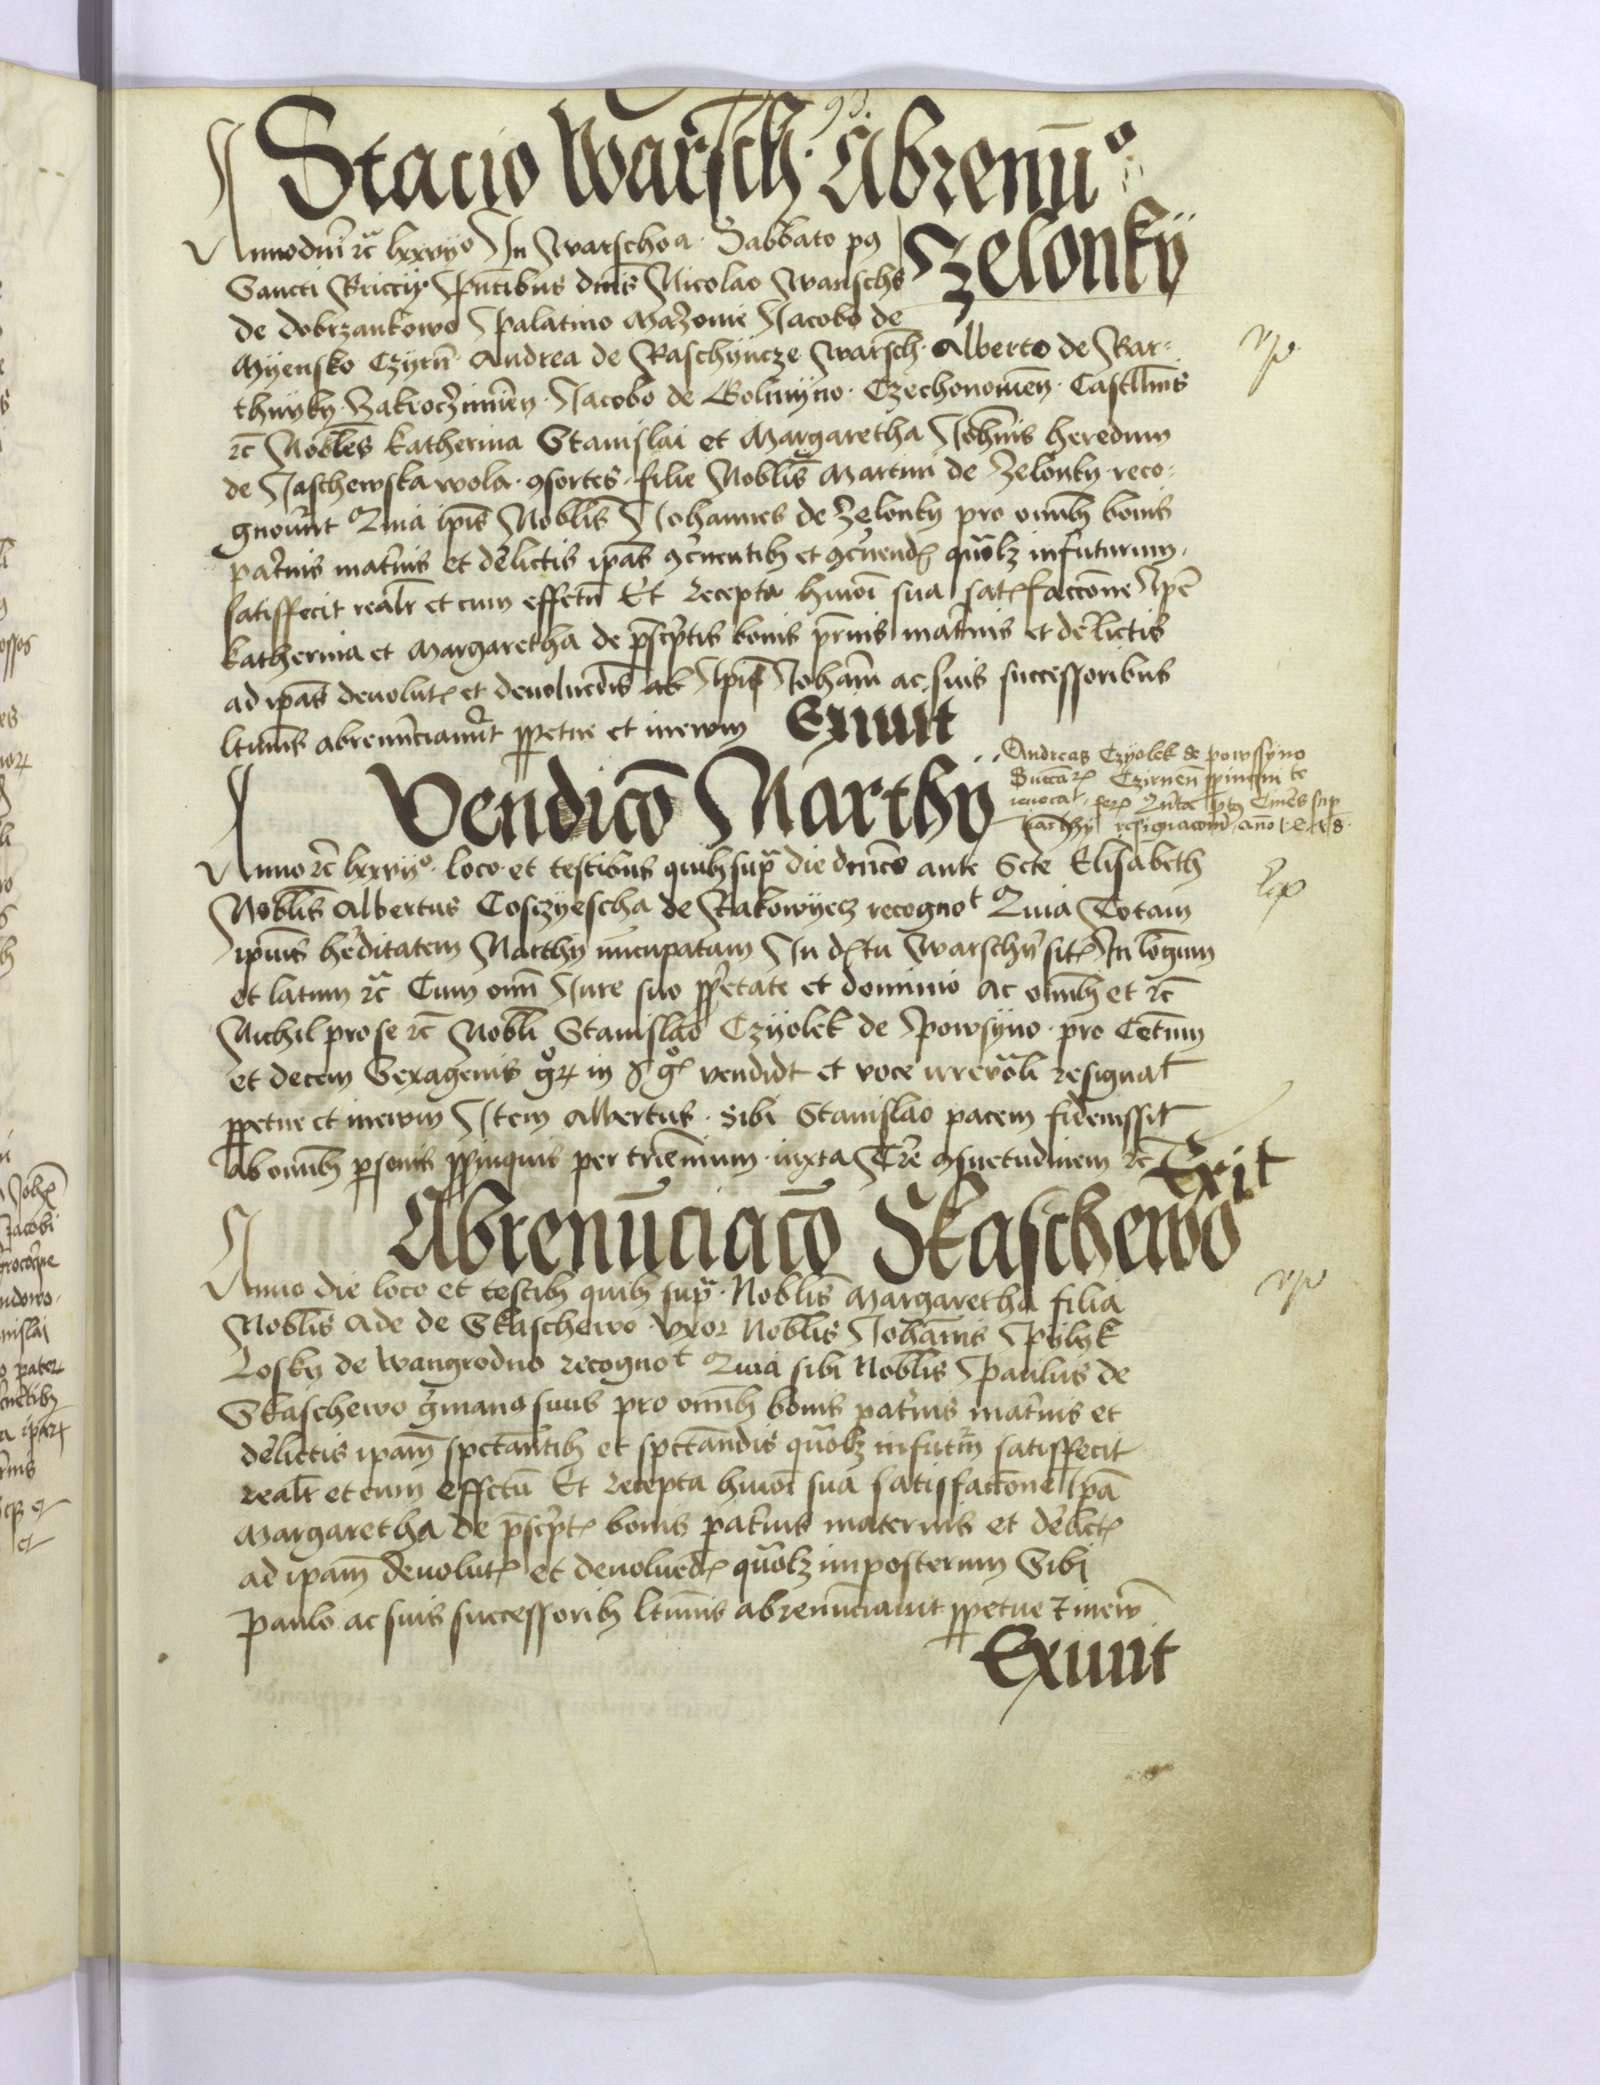 93.
Stacio Warsch. Abrenu̅º
Zelonky
Anno dni̅ rc̅ lxxvijº In Warschoa. Sabbato p9
Sancti Briccij. Pn̅tibus dnis̅ Nicolao Warschs
de dobrzankowo Palatino Mazouie Jacobo de
Myensko Czyrn̅. Andrea de Raschyncze Warsch̅. Alberto de Bar-
thnyky. Zakroczimien̅. Jacobo de Golmyno. Czechonouien̅. Castllnis̅
rc̅ Nobles̅ Katherina Stanislai et Margaretha Joh̅nis heredum
de Jaschewska wola. 9sortes. filie Noblis̅ Martini de Zelonky. reco-
gnouer̅nt Quia ip̅is Noblis̅ Johannes de Zelonky pro omnib̅ bonis
pater̅nis mater̅nis et der̅lictis ipas̅ 9cer̅nentib̅ et 9cer̅nend quo̅lz infuturum.
satisffecit realr̅ et cum effectu̅ Et recepta hmoi̅ sua satisfaccione̅ Ipe̅
Katherina et Margaretha de prescriptis bonis pr̅nis mater̅nis et der̅lictis
ad ipas̅ deuolut et deuoluendis̅ ab Ipis̅ Joham̅ ac suis successoribus
ltimis̅ abrenu̅nciauer̅t ppetue et in ewm Exiunt
Vendico̅ Marthy
Andreas Czyolek de Powssyno
Anno rc̅ lxxvijº. loco et testibus quib̅ supra̅ die dnico̅ ante Scte Elisabeth
Noblis̅ Albertus Cosczyescha de Rakowyecz recognot Quia Totam
ipius̅ her̅ditatem Marthy nu̅cupatam In d̅tu Warschn̅ sit In longum̅
et latum rc̅ Cum omi̅ Jure suo ppr̅etate et dominio ac omnib̅ et rc̅
Nichil pro se rc̅ Nobli̅ Stanislao Czyolek de Powsyno. pro Cetnum̅
et decem Sexagenis gr̅ in gº vendidt et voce irreuoli̅ resignat
ppetue et in ewm Item Albertus. Sibi Stanislao pacem fideiussit
ab omnib̅ personis ppinquis per trienni̅um. iuxta Tre̅ 9suetudinem rc̅ Exit
Abrenu̅nciaco̅ Skaschewo
Anno die loco et testib̅ quib̅ supra̅. Noblis̅ Margaretha filia
Noblis̅ Ade de Skaschewo. Vxor Noblis̅ Joha̅nis Pylyk
Losky de Wangrodno recognot Quia sibi Noblis̅ Paulus de
Skaschewo ger̅mano suus pro omnib̅ bonis pater̅nis mater̅nis et
der̅lictis ipam̅ spectan̅tib̅ et spectan̅dis quo̅lz in futur̅m satisffecit
realr̅ et cum effctu̅ Et recepta hmoi̅ sua satisfaccione̅ Ipa̅
Margaretha de prescript bonis pater̅nis maternis et der̅lict
ad ipam̅ deuolut et deuoluend̅ quo̅lz imposterum Sibi
Paulo ac suis successorib̅ ltimis̅ abrenu̅nciauit ppetue et in ew̅
Exiunt